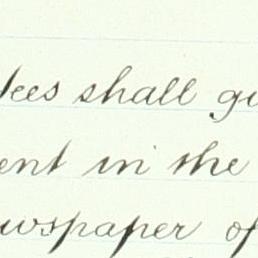 tees shall gi
ent in the
wspaper of